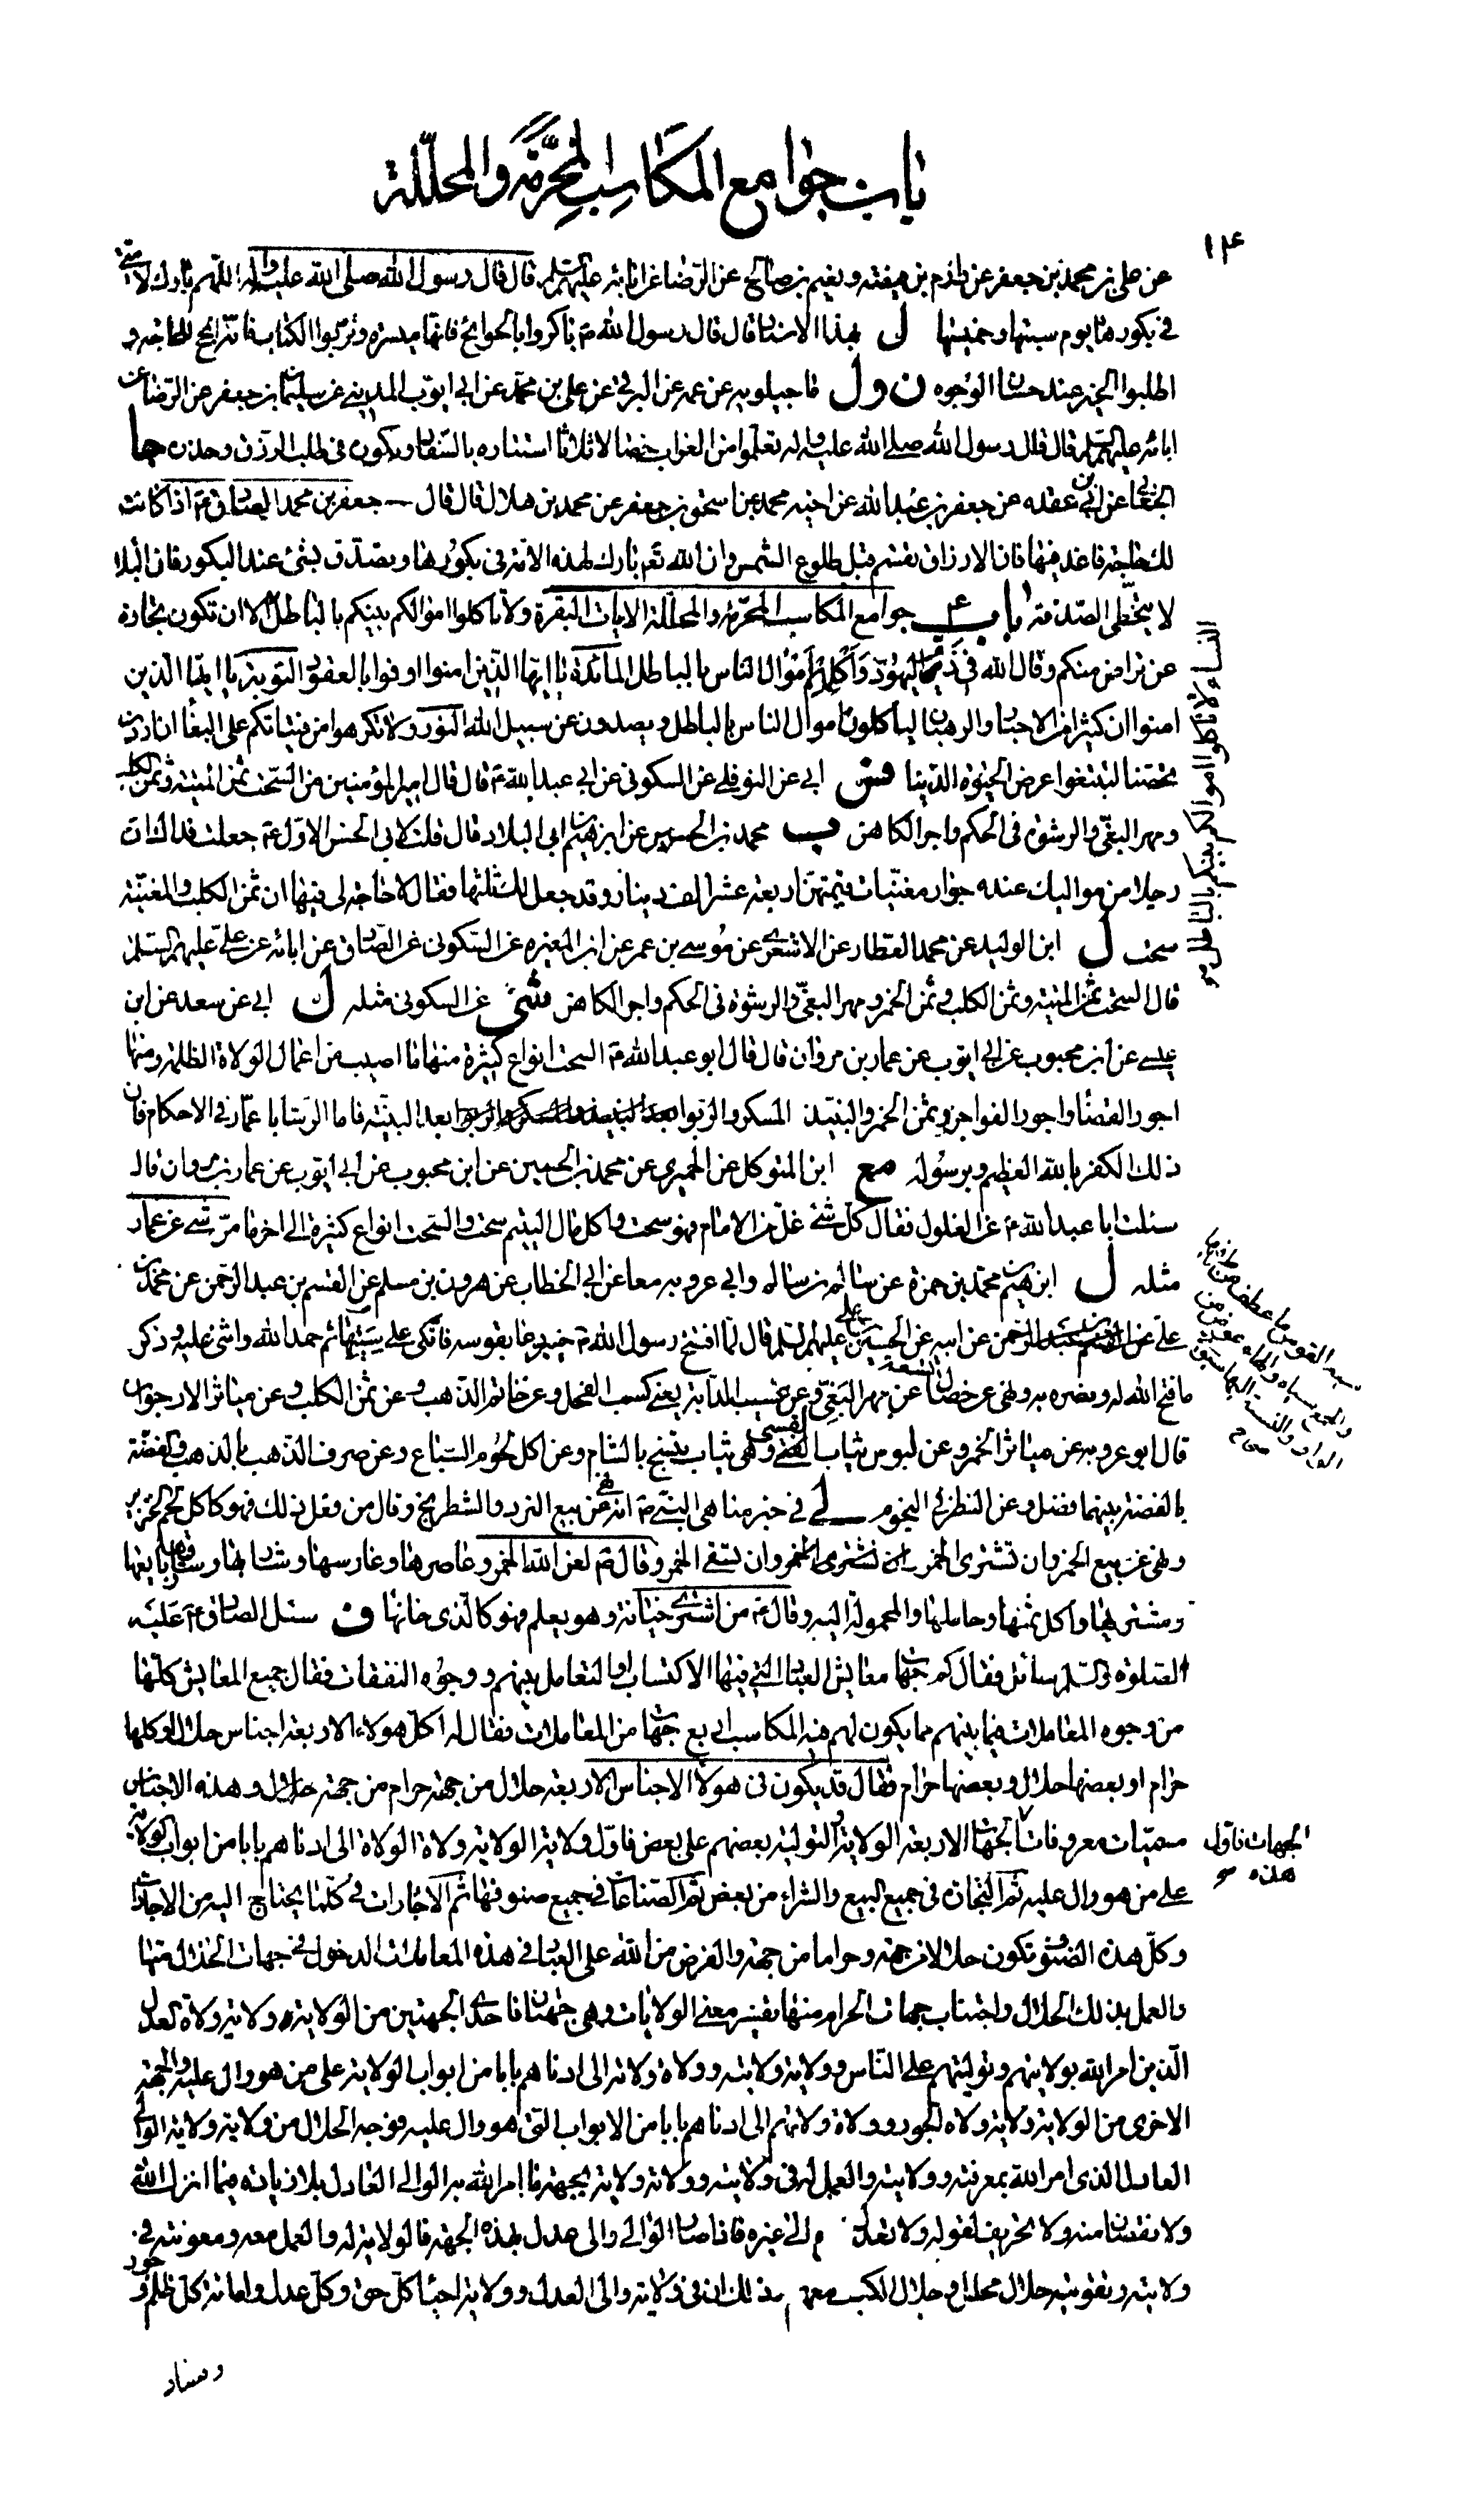 باب جوامع المكاسب المحرّمة والمحلّلة
١٤
عن علي بن محمد بن جعفر عن دارم بن قبيصة ونعيم بن صالح عن الرضا عن ابائه عليهم السلم قال قال رسول الله صلى الله عليه واله اللهم بارك لامتي
في بكورها يوم سبتها وخميسها ل بهذا الاسناد قال قال رسول الله ص باكروا بالحوائج فانها ميسرة وتربوا الكتاب فانه انجح للحاجة و
اطلبوا الخير عند حسان الوجوه ن ول ماجيلويه عن عمه عن البرقي عن علي بن محمد عن ابي ايوب المديني عن سليمان بن جعفر عن الرضا عن
ابائه عليهم السلم قال قال رسول الله صلى الله عليه واله تعلموا من الغراب خصالا ثلاثا استتاره بالسفاد وبكوره في طلب الرزق وحذره جا
الجعابي عن ابن عقده عن جعفر بن عبد الله عن اخيه محمد عن اسحق بن جعفر عن محمد بن هلال قال قال جعفر بن محمد الصادق ع اذا كانت
لك حاجة فاغد فيها فان الارزاق تقسم قبل طلوع الشمس وان الله تع بارك لهذه الامة في بكورها وتصدق بشئ عند البكور فان البلا
لا يتخطى الصدقة باب ٤ جوامع المكاسب المحرمة والمحللة الايات البقرة ولا تاكلوا اموالكم بينكم بالباطل الا ان تكون تجارة
عن تراض منكم وقال الله في ذم اليهود وَأَكْلِهِمْ أَمْوَالَ الناس بالباطل المائدة يا ايها الذين امنوا اوفوا بالعقود التوبة يا ايها الذين
امنوا ان كثيرا من الاحبار والرهبان لياكلون اموال الناس بالباطل ويصدون عن سبيل الله النور ولا تكرهوا فتياتكم على البغاء ان اردن
تحصنا لتبتغوا عرض الحيوة الدنيا فس ابي عن النوفلي عن السكوني عن ابي عبد الله ع قال قال امير المؤمنين من السحت ثمن الميتة وثمن الكلب
ومهر البغي والرشوة في الحكم واجر الكاهن ب محمد بن الحسين عن ابرهيم ابي البلاد قال قلت لابي الحسن الاول ع جعلت فداك ان
رجلا من مواليك عنده جوار مغنيات قيمتهن اربعة عشر الف دينار وقد جعل لك ثلثها فقال لا حاجة لي فيها ان ثمن الكلب والمغنية
سحت ل ابن الوليد عن محمد العطار عن الاشعري عن موسى بن عمر عن ابن المغيرة عن السكوني عن الصادق عن ابائه عن علي عليهم السلم
قال السحت ثمن الميتة وثمن الكلب وثمن الخمر ومهر البغي والرشوة في الحكم واجر الكاهن شي عن السكوني مثله ل ابي عن سعد عن ابن
عيسى عن ابن محبوب عن ابي ايوب عن عمار بن مروان قال قال ابو عبد الله ع السحت انواع كثيرة منها ما اصيب من اعمال الولاة الظلمة ومنها
اجور القضاة واجور الفواجر وثمن الخمر والنبيذ المسكر والربوا بعد البينة فاما الرشا يا عمار في الاحكام فان
ذلك الكفر بالله العظيم وبرسوله مع ابن المتوكل عن الحميري عن محمد بن الحسين عن ابن محبوب عن ابي ايوب عن عمار بن مروان قال
سئلت ابا عبد الله ع عن الغلول فقال كل شئ غل من الامام فهو سحت واكل مال اليتيم سحت والسحت انواع كثيرة الى اخر ما مر شي عن عمار
مثله ل ابن محمد بن حمزة عن سالم بن سالم وابي عروبه معا عن ابي الخطاب عن هرون بن مسلم عن القسم بن عبد الرحمن عن محمد بن
علي عن ابيه عن الحسين بن علي عليهم السلم قال لما افتتح رسول الله ص خيبر دعا بقوسه فاتكى على سيتها ثم حمد الله واثنى عليه وذكر
ما فتح الله له ونصره به ونهى عن خصال تسعة عن مهر البغي وعن عسيب الدابة يعني كسب الفحل وعن خاتم الذهب وعن ثمن الكلب وعن مياثر الارجوان
قال ابو عروبه عن مياثر الخمر وعن لبوس ثياب القسي وهي ثياب تنسج بالشام وعن اكل لحوم السباع وعن صرف الذهب بالذهب والفضة
بالفضة بينهما فضل وعن النظر في النجوم لي في خبر مناهي النبي ص انه نهى عن بيع النرد والشطرنج وقال من فعل ذلك فهو كاكل لحم الخنزير
ونهى عن بيع الخمر وان تشترى الخمر وان تسقى الخمر وقال ع لعن الله الخمر وعاصرها وغارسها وشاربها وساقيها وبايعها
ومشتريها واكل ثمنها وحاملها والمحمولة اليه وقال ع من اشترى خيانة وهو يعلم فهو كالذي خانها ف سئل الصادق ع عليه
الصلوة والسلم سائل فقال كم جهات معايش العباد التي فيها الاكتساب او التعامل بينهم ووجوه النفقات فقال جميع المعايش كلها
من وجوه المعاملات فيما بينهم مما يكون لهم فيه المكاسب اربع جهات من المعاملات فقال له اكل هؤلاء الاربعة اجناس حلال او كلها
حرام او بعضها حلال وبعضها حرام فقال قد يكون في هؤلاء الاجناس الاربعة حلال من جهة حرام من جهة حلال وهذه الاجناس
مسميات معروفات الجهات الاربعة الولاية والتولية بعضهم على بعض فاول ولاية الولاية ولاة الولاة الى ادناهم بابا من ابواب الولاية
على من هو وال عليه ثم التجارة في جميع البيع والشراء من بعض ثم الصناعات في جميع صنوفها ثم الاجارات في كلما يحتاج اليه من الاجارات
وكل هذه الصنوف تكون حلالا من جهة وحراما من جهة والفرض من الله على العباد في هذه المعاملات الدخول في جهات الحلال منها
والعمل بذلك الحلال واجتناب جهات الحرام منها تفسير معنى الولايات وهي جهتان فاحدى الجهتين من الولاية ولاية ولاة العدل
الذين امر الله بولايتهم وتوليتهم على الناس وولاية ولايته وولاة ولاته الى ادناهم بابا من ابواب الولاية على من هو وال عليه والجهة
الاخرى من الولاية ولاية ولاة الجور وولاة ولاتهم الى ادناهم بابا من الابواب التي هو وال عليه فوجه الحلال من ولاية ولاية الوالي
العادل الذي امر الله بمعرفته وولايته والعمل له في ولايته وولاته وولاية بجهة ما امر الله به الوالي العادل بلا زيادة فيما انزل الله
ولا نقصان منه ولا تحريف لقوله ولا تعد الى غيره فاذا صار الوالي والي عدل بهذه الجهة فالولاية له والعمل معه ومعونته في
ولايته وتقويته حلال محلل وحلال الكسب معهم وذلك ان في ولاية والي العدل وولاته احياء كل حق وكل عدل واماتة كل ظلم وجور
وفساد
النساء ولا تاكلوا اموالكم بينكم بالباطل
الجهات فاول
هذه